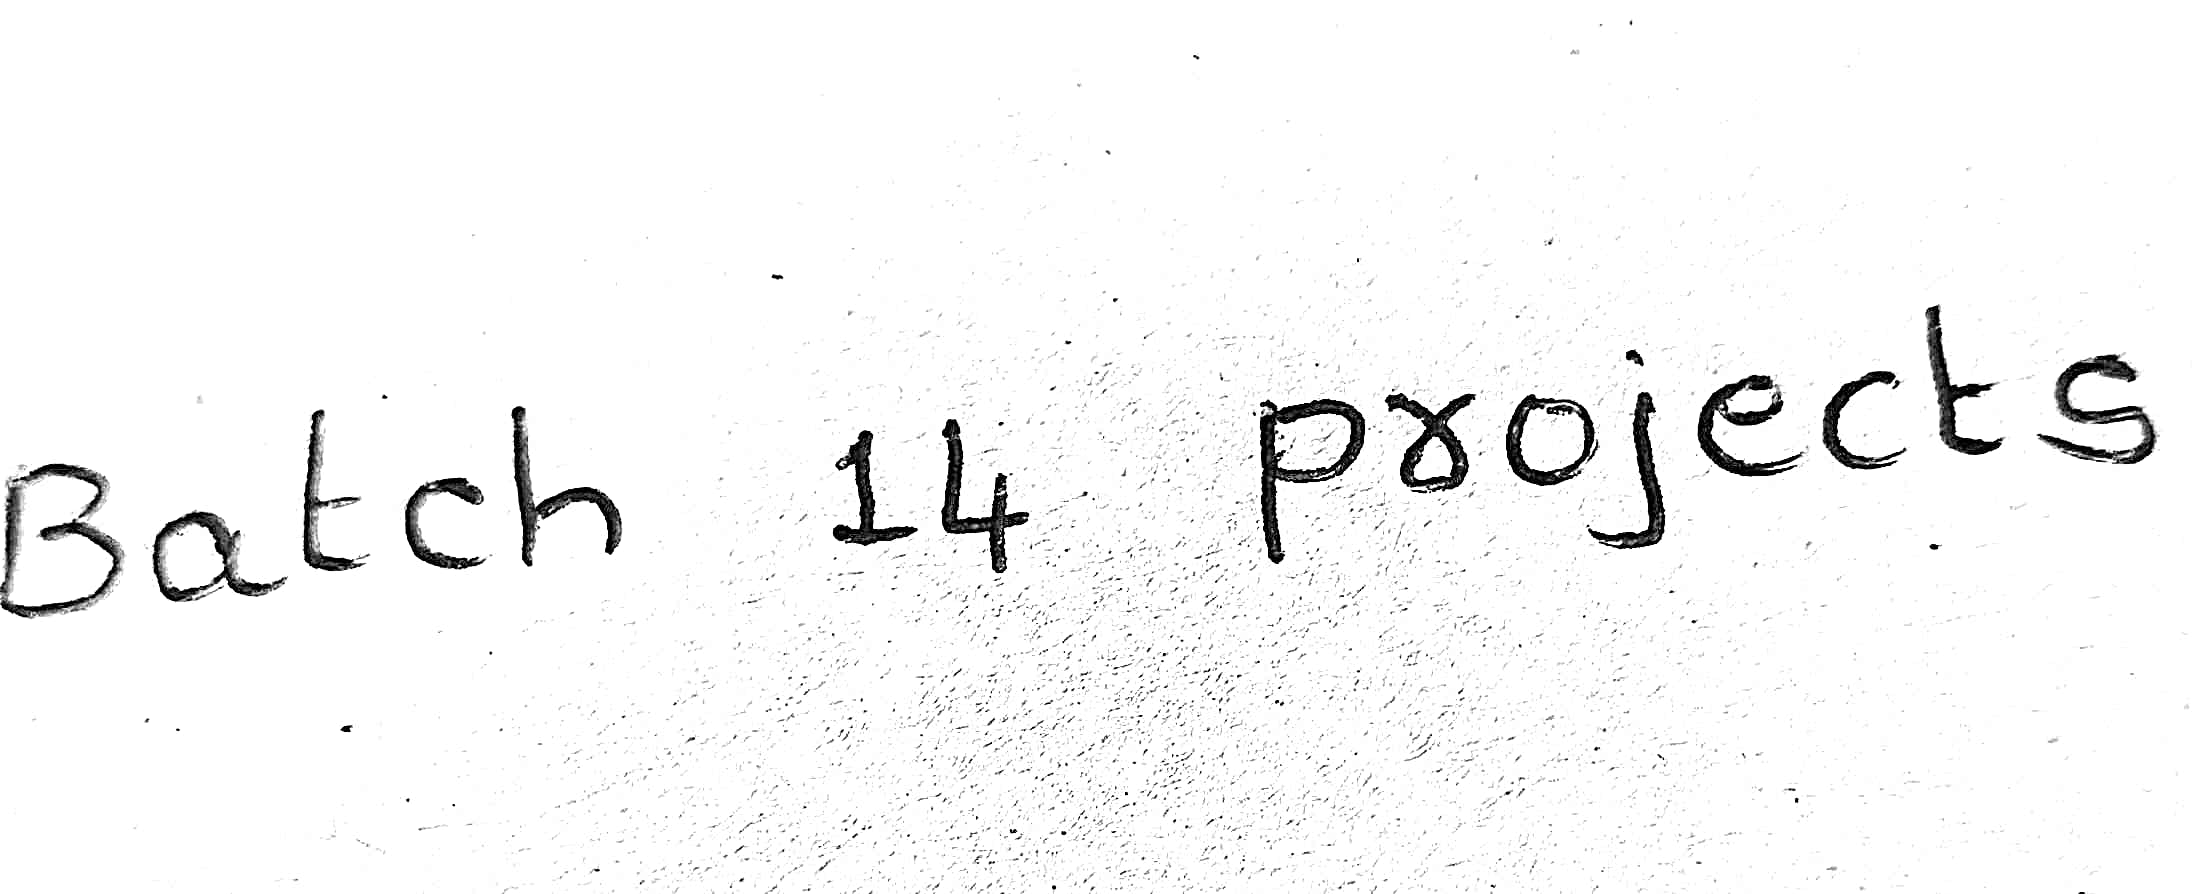 Batch 14 projects